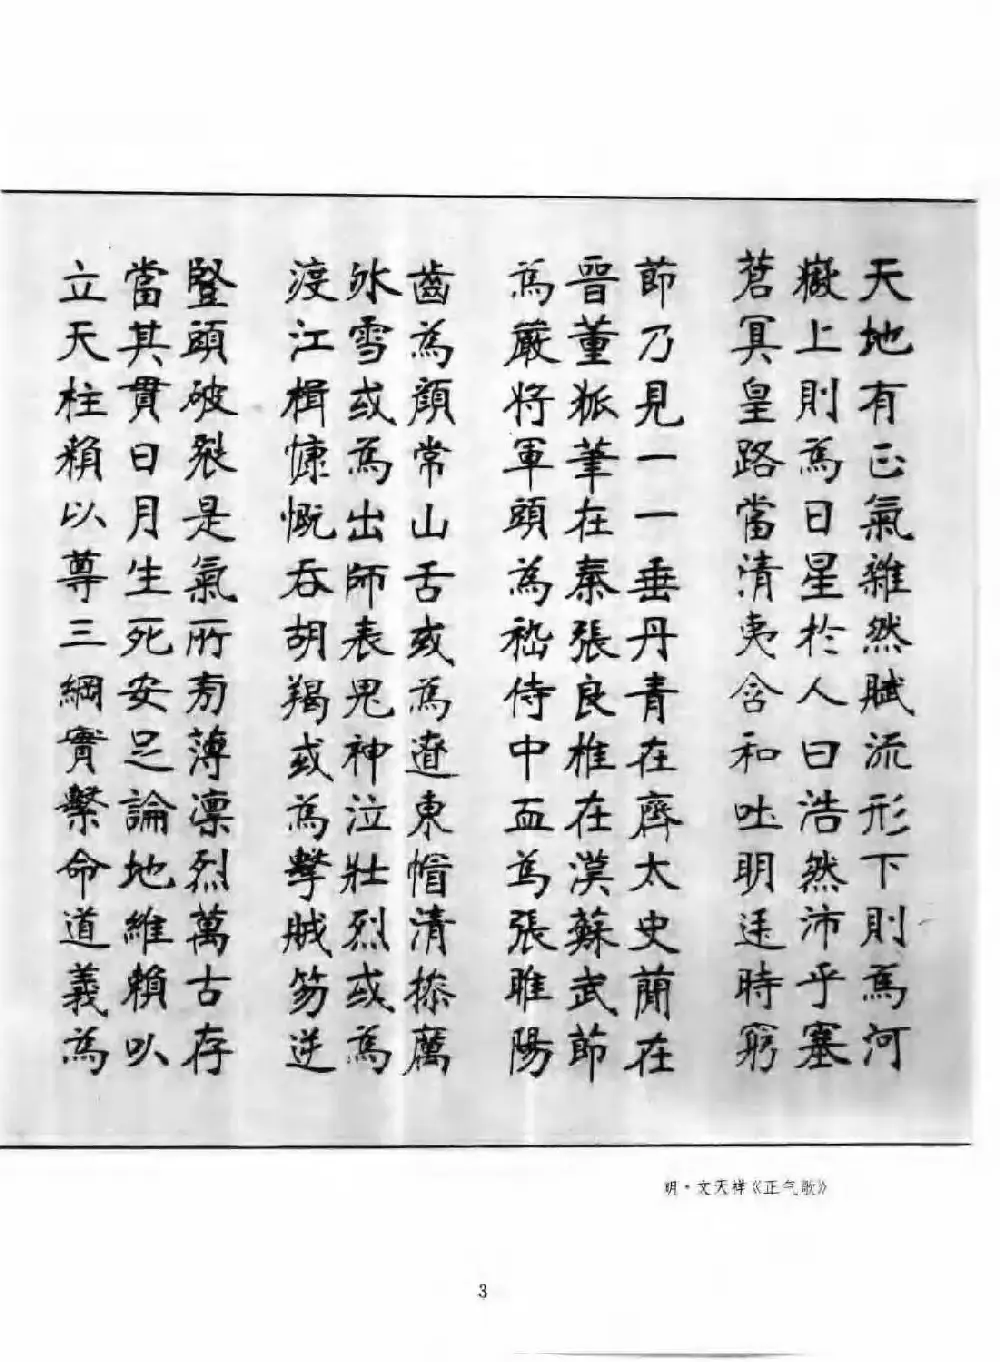 天地有正氣雜然賦流形下則為河
嶽上則為日星於人曰浩然沛乎塞
蒼冥皇路當清夷含和吐明廷時窮
節乃見一一垂丹青在齊太史簡在
晉董狐筆在秦張良椎在漢蘇武節
為嚴將軍頭為嵇侍中血為張睢陽
齒為顏常山舌或為遼東帽清操厲
冰雪或為出師表鬼神泣壯烈或為
渡江楫慷慨吞胡羯或為擊賊笏逆
豎頭破裂是氣所旁薄凛烈萬古存
當其貫日月生死安足論地維賴以
立天柱賴以尊三綱實繫命道義為
明·文天祥《正气歌》
3